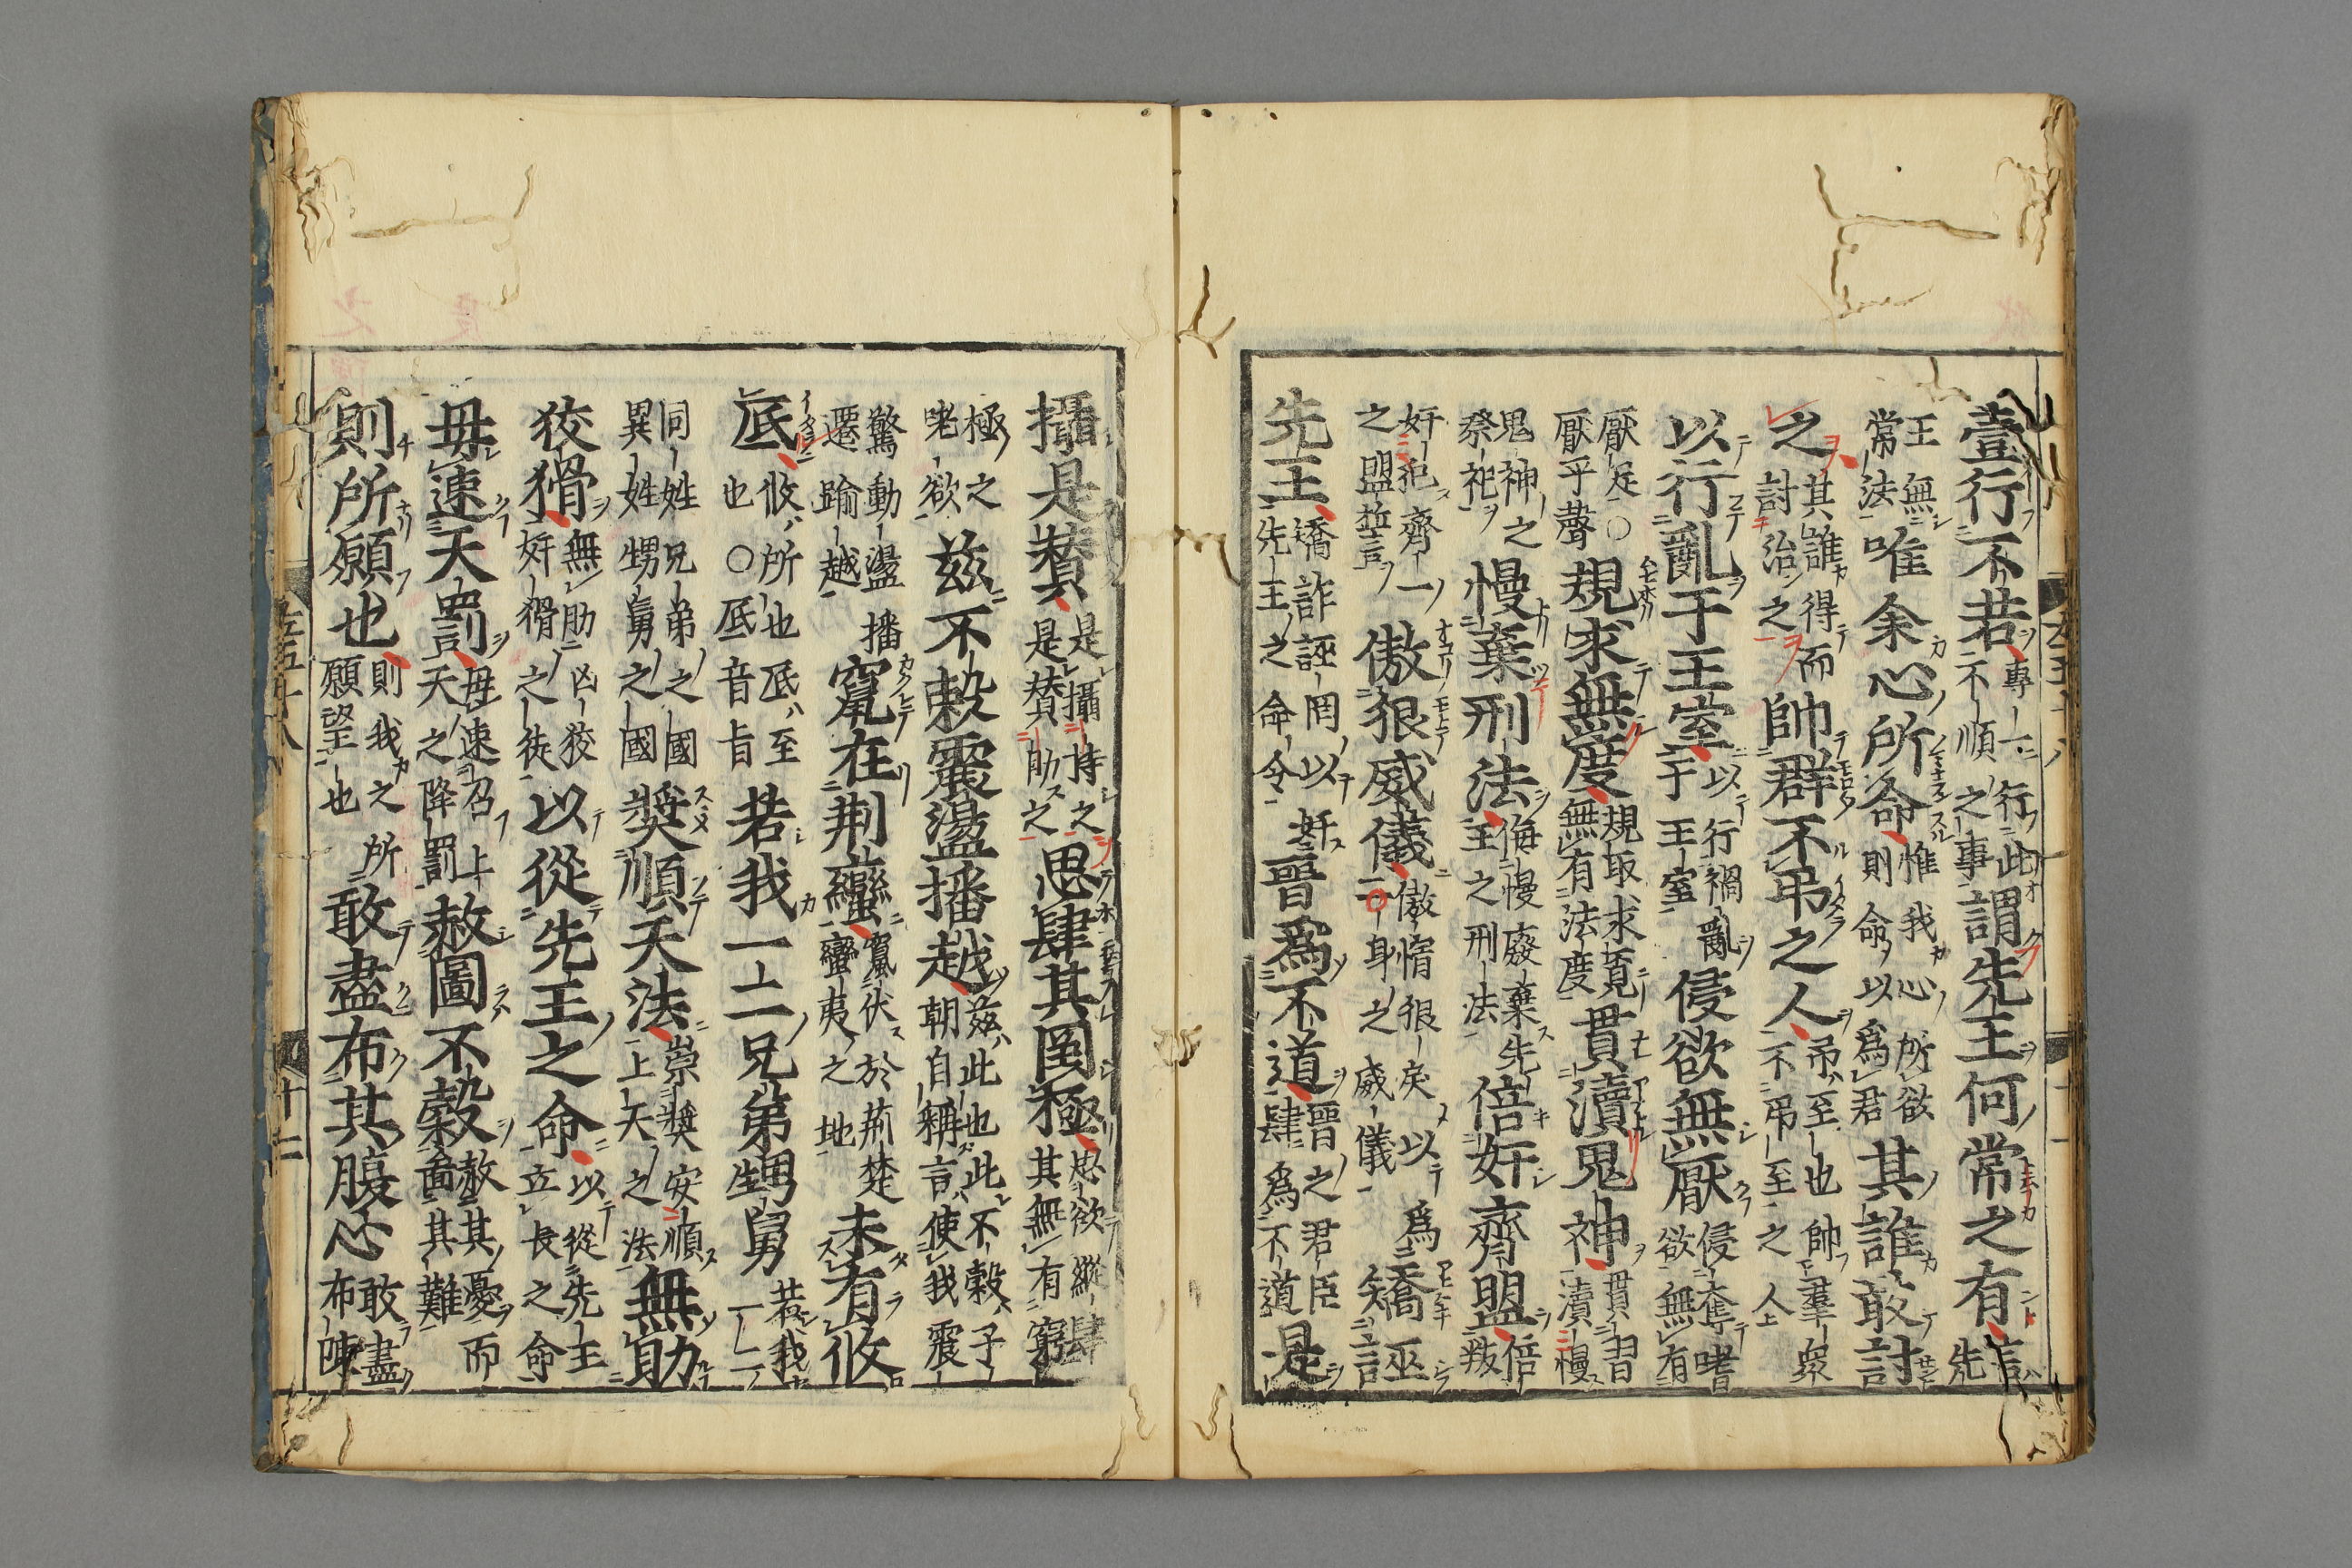 壹行不若專一行此不順之事謂先王何常之有言先
王無常法唯余心所命惟我心所欲則命以爲君其誰敢討
之其誰得而討治之帥群不弔之人弔至也帥羣衆不弔至之人上
以行亂于王室以行禍亂于王室侵欲無厭侵奪嗜欲無有
厭足○厭平聲規求無度規取求覓無有法度貫瀆鬼神貫習瀆慢
鬼神之祭祀慢棄刑法侮慢廢棄先王之刑法倍奸齊盟倍叛
奸犯齊一之盟誓言傲狠威儀傲惰狠戾一身之威儀以爲矯誣
先王矯詐誣罔以先王之命令奸晉爲不道晉之君臣肆爲不道是
攝是賛是攝持之是賛助之思肆其罔極思欲縱肆其無有窮
極之咾欲茲不穀震盪播越茲此也此不穀子朝自稱言使我震
驚動盪播遷踰越竄在荆蠻竄伏於荊楚蠻夷之地未有攸
底攸所也底至也○底音旨若我一二兄弟甥舅若我一二
同姓兄弟之國異姓甥舅之國奬順天法崇奬安順上天之法無助
狡猾無助凶狡奸猾之徒以從先王之命以從先王立長之命
毋速天罰毋速召上天之降罰赦圖不穀赦其憂而啚其難
則所願也則我之所願望也敢盡布其腹心敢盡布陳
左五十八
十二